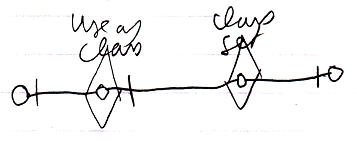 Use as
class
class